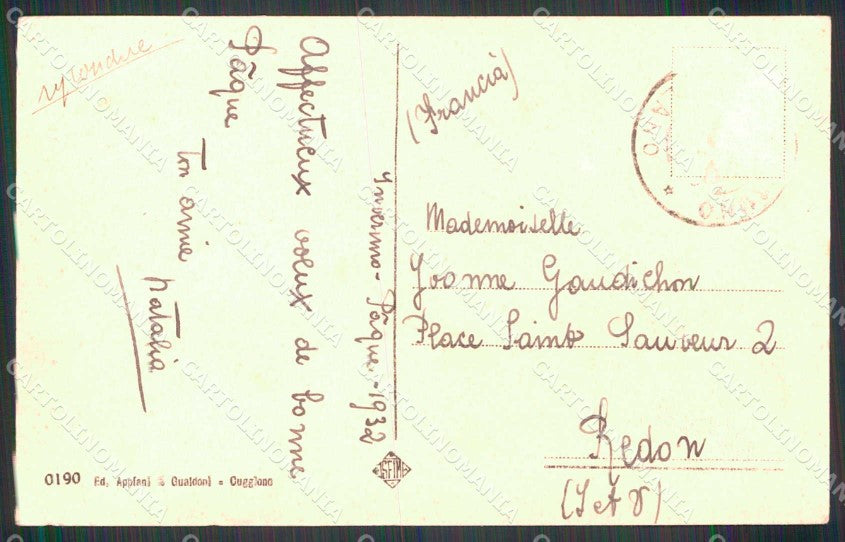 Affectueux voeux de bonne
Pâque
Ton amie Natalia
Inverno - Pâque - 1932
(Francia)
Mademoiselle
Yvonne Gaudichon
Place Saint Sauveur 2
Redon
(I et V)
0190 Ed. Appiani & Gualdoni - Cuggiono
CARTOLINOMANIA